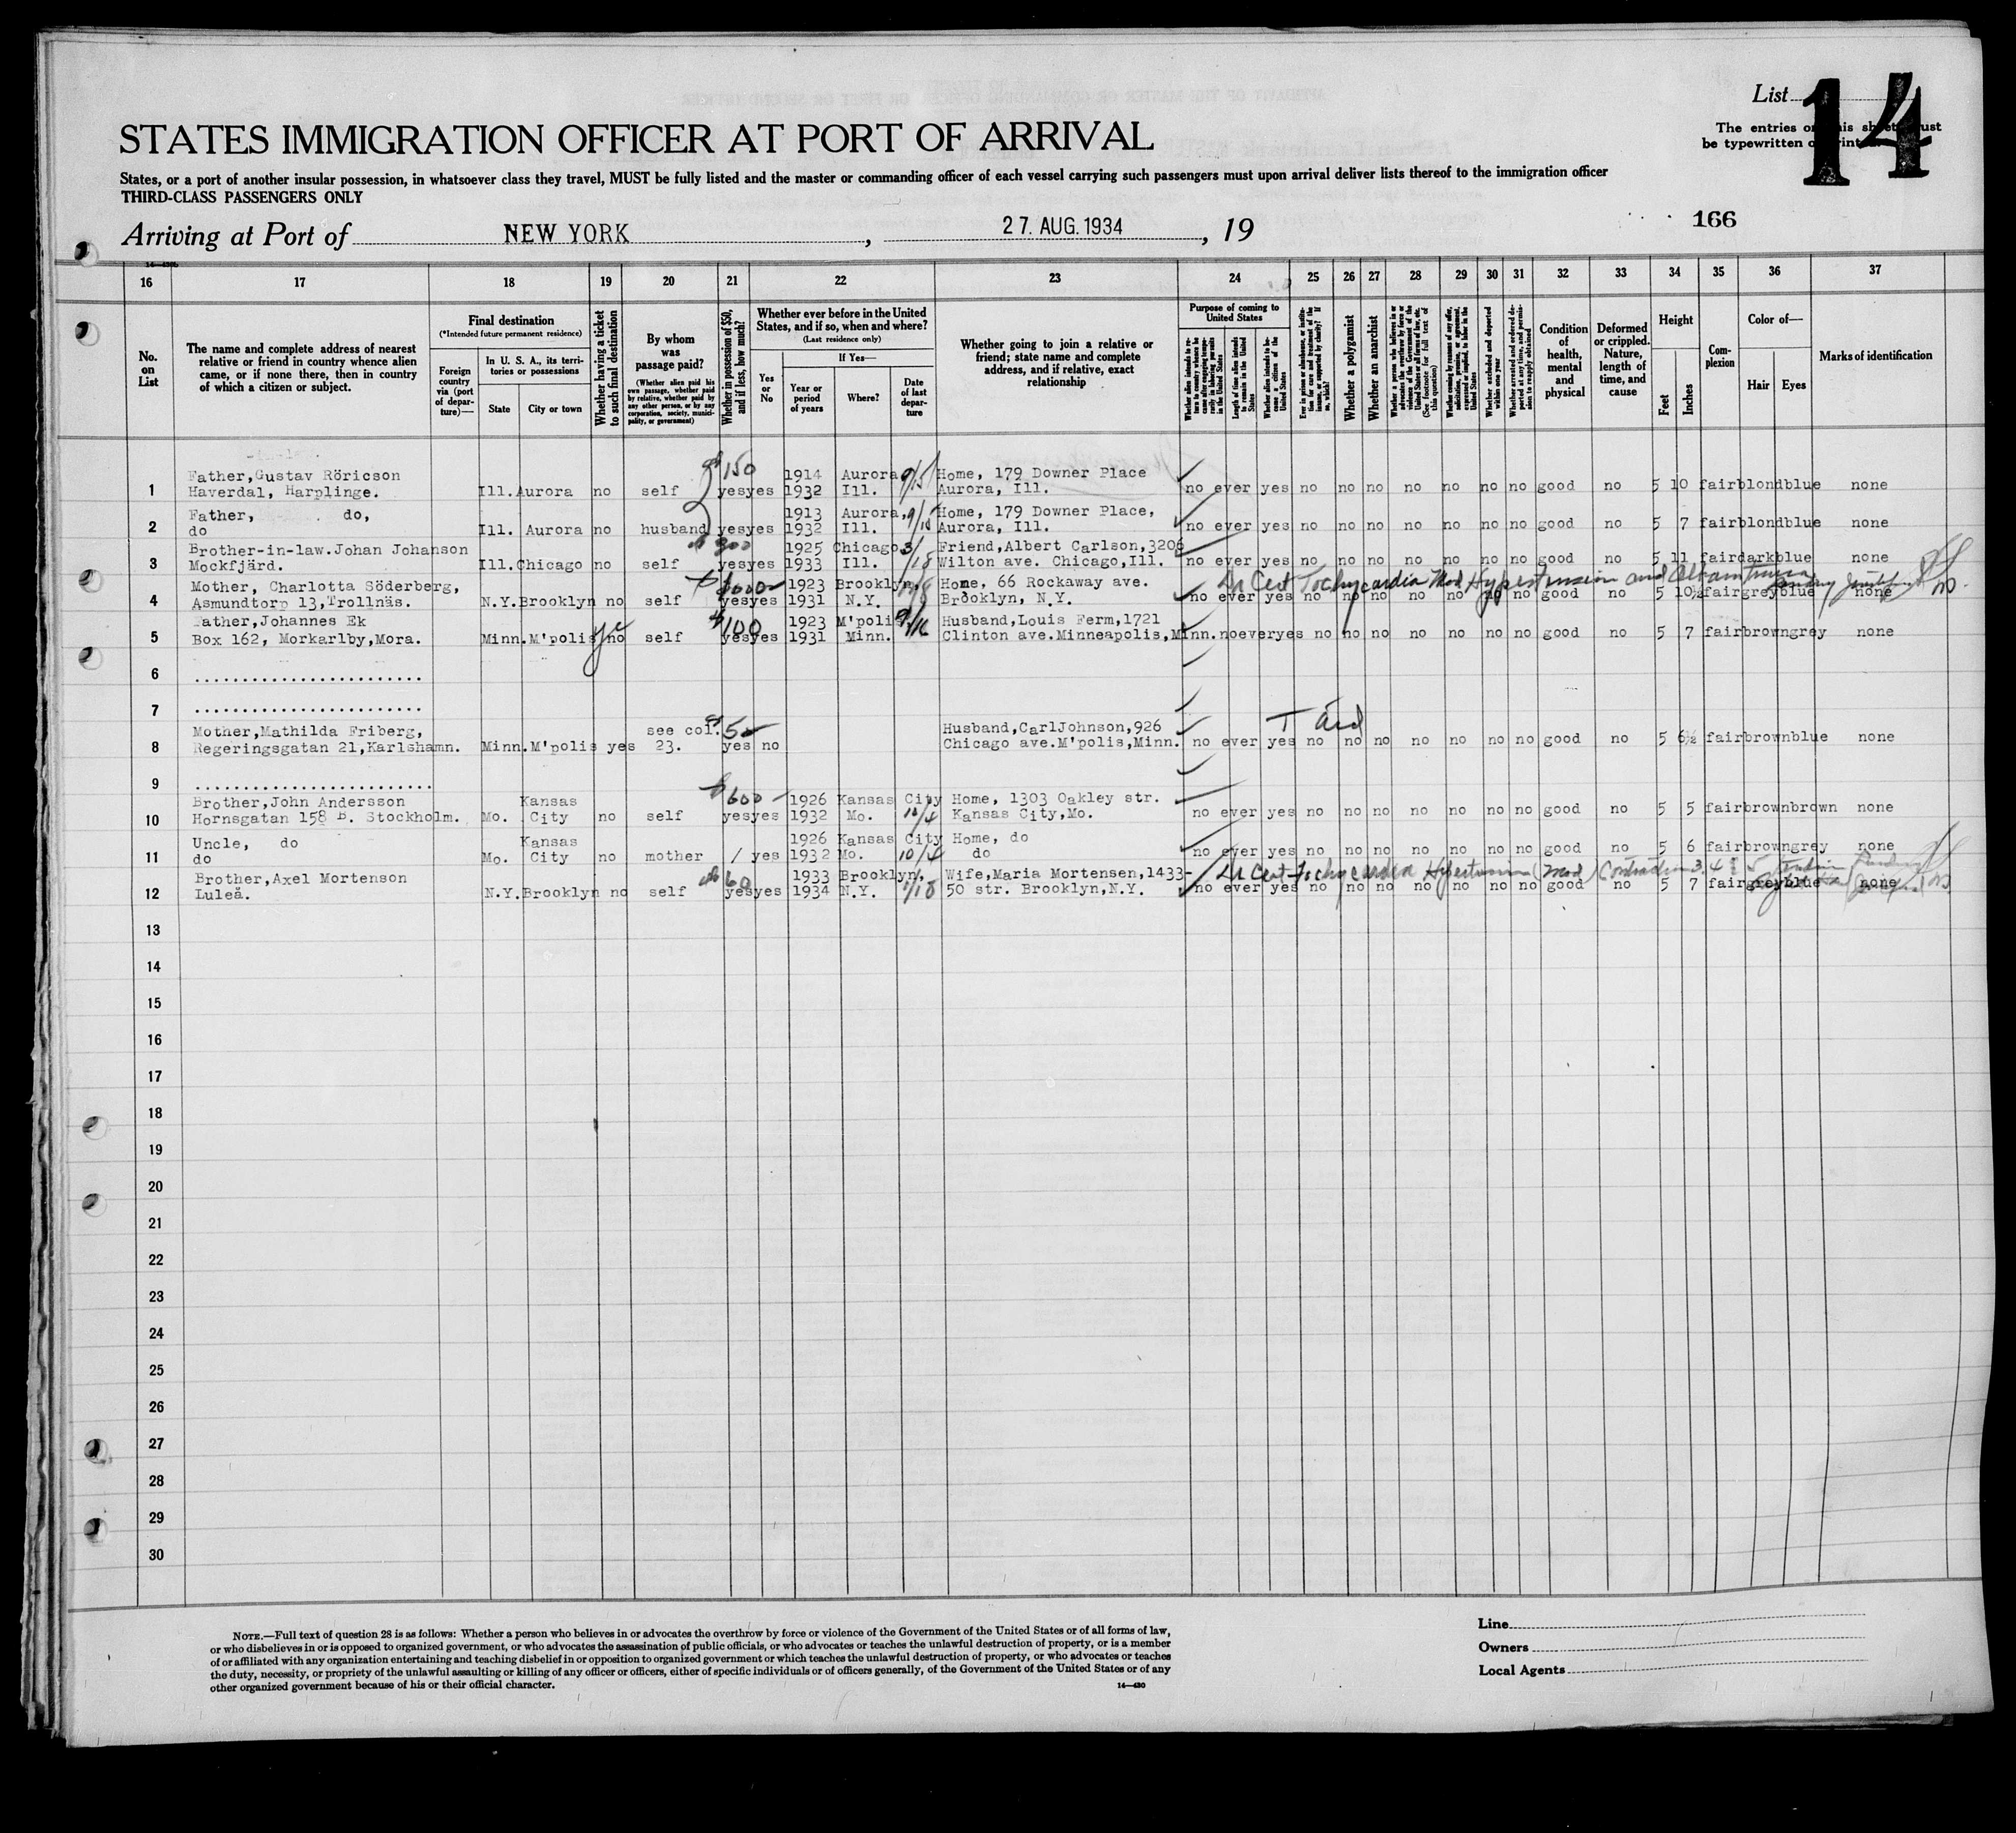 List
14
The entries on this sheet must
be typewritten or printed.
STATES IMMIGRATION OFFICER AT PORT OF ARRIVAL
States, or a port of another insular possession, in whatsoever class they travel, MUST be fully listed and the master or commanding officer of each vessel carrying such passengers must upon arrival deliver lists thereof to the immigration officer
THIRD-CLASS PASSENGERS ONLY
166
Arriving at Port of NEW YORK, 27. AUG. 1934, 19
16 17 18 19 20 21 22 23 24 25 26 27 28 29 30 31 32 33 34 35 36 37
No. on List
The name and complete address of nearest relative or friend in country whence alien came, or if none there, then in country of which a citizen or subject.
Final destination
(*Intended future permanent residence)
Foreign country via (port of departure)—
In U. S. A., its territories or possessions
State
City or town
Whether having a ticket to such final destination
By whom was passage paid?
(Whether alien paid his own passage, whether paid by relative, whether paid by any other person, or by any corporation, society, municipality, or government)
Whether in possession of $50, and if less, how much?
Whether ever before in the United States, and if so, when and where?
(Last residence only)
Yes or No
If Yes—
Year or period of years
Where?
Date of last departure
Whether going to join a relative or friend; state name and complete address, and if relative, exact relationship
Purpose of coming to United States
Length of time alien intends to remain in the United States
Whether alien intends to become a citizen of the United States
Whether a polygamist
Whether an anarchist
(See footnote for full text of this question)
Whether excluded and deported within one year
Condition of health, mental and physical
Deformed or crippled. Nature, length of time, and cause
Height
Feet
Inches
Complexion
Color of—
Hair
Eyes
Marks of identification
$150
Father,Gustav Röricson 1914 Aurora 9/15 Home, 179 Downer Place
1 Haverdal, Harplinge. Ill.Aurora no self yes yes 1932 Ill. Aurora, Ill. no ever yes no no no no no no no good no 5 10 fair blond blue none
Father, do, 1913 Aurora, 9/15 Home, 179 Downer Place,
2 do Ill. Aurora no husband yes yes 1932 Ill. Aurora, Ill. no ever yes no no no no no no no good no 5 7 fair blond blue none
Brother-in-law.Johan Johanson 300 1925 Chicago 3/18 Friend,Albert Carlson,3206
3 Mockfjärd. Ill.Chicago no self yes yes 1933 Ill. Wilton ave. Chicago,Ill. no ever yes no no no no no no no good no 5 11 fair dark blue none
Mother, Charlotta Söderberg, 1923 Brooklyn, Home, 66 Rockaway ave. Dr Cert Tachycardia Mod Hypertension and Albuminuria
4 Asmundtorp 13,Trollnäs. N.Y.Brooklyn no self yes yes 1931 N.Y. Brooklyn, N.Y. no ever yes no no no no no no no good no 5 10½ fair grey blue none
Father, Johannes Ek $100 1923 M'polis 9/16 Husband,Louis Ferm,1721
5 Box 162, Morkarlby,Mora. Minn.M'polis no self yes yes 1931 Minn. Clinton ave.Minneapolis,Minn. no ever yes no no no no no no no good no 5 7 fair brown grey none
6 ........................
7 ........................
Mother,Mathilda Friberg, see col. Husband,CarlJohnson,926
8 Regeringsgatan 21,Karlshamn. Minn.M'polis yes 23. yes no Chicago ave.M'polis,Minn. no ever yes no no no no no no no good no 5 6½ fair brown blue none
9 ........................
Brother,John Andersson Kansas $600 1926 Kansas City Home, 1303 Oakley str.
10 Hornsgatan 158 B. Stockholm. Mo. City no self yes yes 1932 Mo. 10/4 Kansas City,Mo. no ever yes no no no no no no no good no 5 5 fair brown brown none
Uncle, do Kansas 1926 Kansas City Home, do
11 do Mo. City no mother / yes 1932 Mo. 10/4 do no ever yes no no no no no no no good no 5 6 fair brown grey none
Brother,Axel Mortenson 60 1933 Brooklyn, Wife,Maria Mortensen,1433- Dr Cert Tachycardia Hypertension (Mod)
12 Luleå. N.Y.Brooklyn no self yes yes 1934 N.Y. 1/18 50 str. Brooklyn,N.Y. no ever yes no no no no no no no good no 5 7 fair grey blue none
13
14
15
16
17
18
19
20
21
22
23
24
25
26
27
28
29
30
NOTE.—Full text of question 28 is as follows: Whether a person who believes in or advocates the overthrow by force or violence of the Government of the United States or of all forms of law,
or who disbelieves in or is opposed to organized government, or who advocates the assassination of public officials, or who advocates or teaches the unlawful destruction of property, or is a member
of or affiliated with any organization entertaining and teaching disbelief in or opposition to organized government or which teaches the unlawful destruction of property, or who advocates or teaches
the duty, necessity, or propriety of the unlawful assaulting or killing of any officer or officers, either of specific individuals or of officers generally, of the Government of the United States or of any
other organized government because of his or their official character.
14—430
Line
Owners
Local Agents